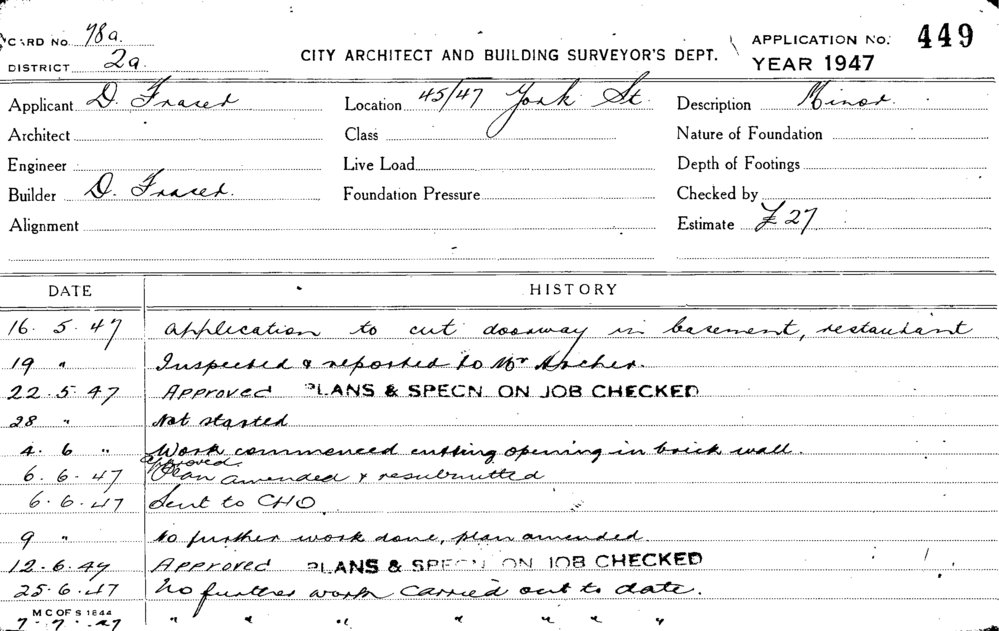 CARD NO. 78a.
DISTRICT 2a.
CITY ARCHITECT AND BUILDING SURVEYOR'S DEPT.
APPLICATION NO: 449
YEAR 1947
Applicant D. Fraser Location 45/47 York St. Description Minor.
Architect Class Nature of Foundation
Engineer Live Load Depth of Footings
Builder D. Fraser. Foundation Pressure Checked by
Alignment Estimate £27
DATE HISTORY
16. 5. 47 Application to cut doorway in basement, restaurant
19 " Inspected & reported to Mr Archer.
22. 5. 47 Approved PLANS & SPECN ON JOB CHECKED
28 " Not started
4. 6 " Work commenced cutting opening in brick wall.
approved
6. 6. 47 Plan amended & resubmitted
6. 6. 47 Sent to CHO.
9 " No further work done, plan amended.
12. 6. 47 Approved PLANS & SPECN ON JOB CHECKED
25. 6. 47 No further work carried out to date.
M C OF S 1844
7. 7. 47 " " " " " " "